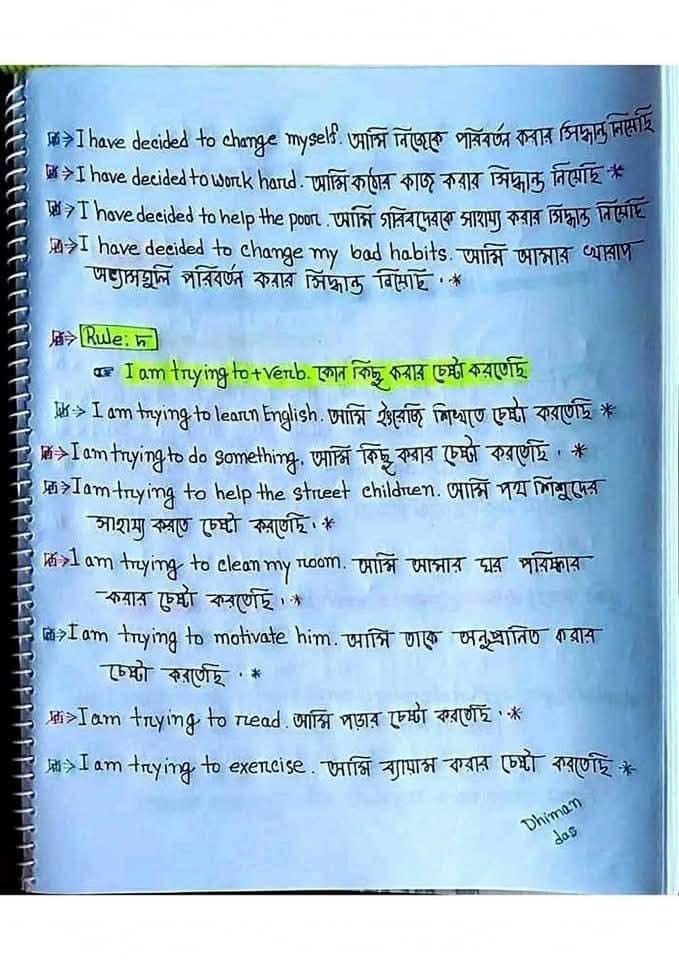 → I have decided to change myself. আমি নিজেকে পরিবর্তন করার সিদ্ধান্ত নিয়েছি
→ I have decided to work hard. আমি কঠোর কাজ করার সিদ্ধান্ত নিয়েছি *
→ I have decided to help the poor. আমি গরিবদেরকে সাহায্য করার সিদ্ধান্ত নিয়েছি
→ I have decided to change my bad habits. আমি আমার খারাপ
অভ্যাসগুলি পরিবর্তন করার সিদ্ধান্ত নিয়েছি . *
→ Rule: ৮
☞ I am trying to + verb. কোন কিছু করার চেষ্টা করতেছি
→ I am trying to learn English. আমি ইংরেজি শিখতে চেষ্টা করতেছি *
→ I am trying to do something. আমি কিছু করার চেষ্টা করতেছি . *
→ I am trying to help the street children. আমি পথ শিশুদের
সাহায্য করতে চেষ্টা করতেছি . *
→ I am trying to clean my room. আমি আমার ঘর পরিষ্কার
করার চেষ্টা করতেছি . *
→ I am trying to motivate him. আমি তাকে অনুপ্রানিত করার
চেষ্টা করতেছি . *
→ I am trying to read. আমি পড়ার চেষ্টা করতেছি . *
→ I am trying to exercise. আমি ব্যায়াম করার চেষ্টা করতেছি *
Dhiman
das